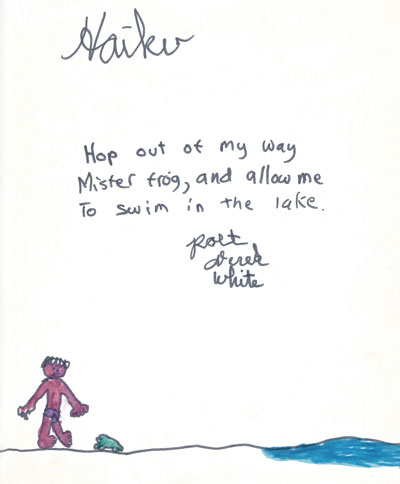 Haiku
Hop out of my way
Mister frog, and allow me
To swim in the lake.
Poet
Derek
White